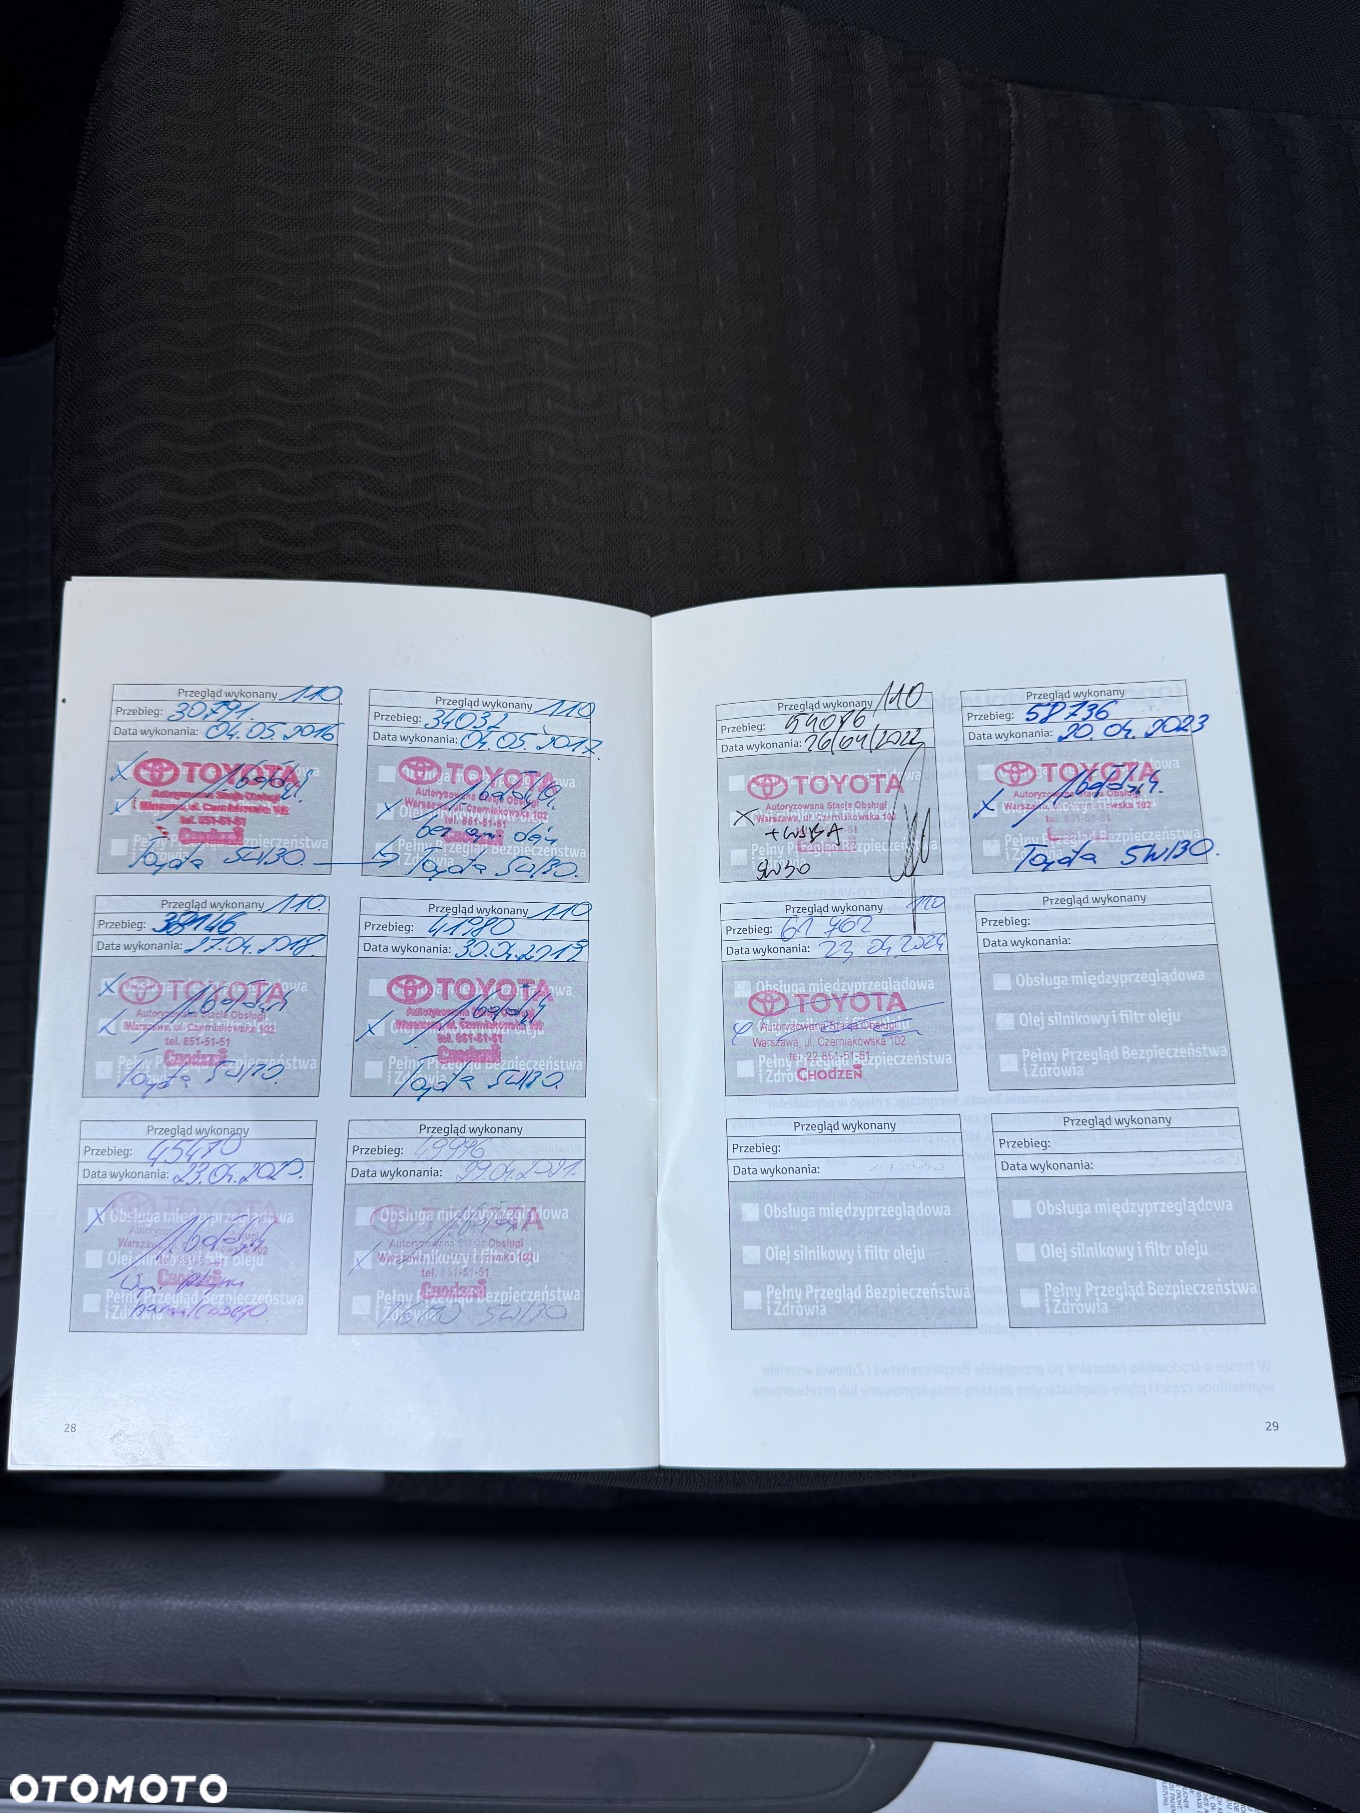 Przegląd wykonany 110.
Przebieg: 30791.
Data wykonania: 04.05.2016
TOYOTA
Autoryzowana Stacja Obsługi
Warszawa, ul. Czerniakowska 102
tel. 851-51-51
Chodzeń
Toyota 5W30.
Przegląd wykonany 110
Przebieg: 34032
Data wykonania: 04.05.2017.
TOYOTA
Autoryzowana Stacja Obsługi
Warszawa, ul. Czerniakowska 102
tel. 851-51-51
Pełny Przegląd Bezpieczeństwa
i Zdrowia
Toyota 5W30.
Przegląd wykonany 110.
Przebieg: 38146
Data wykonania: 27.04.2018.
TOYOTA
Autoryzowana Stacja Obsługi
Warszawa, ul. Czerniakowska 102
tel. 851-51-51
Chodzeń
Toyota 5W30.
Przegląd wykonany 110
Przebieg: 41980
Data wykonania: 30.04.2019
TOYOTA
Autoryzowana Stacja Obsługi
Warszawa, ul. Czerniakowska 102
tel. 851-51-51
Chodzeń
Toyota 5W30.
Przegląd wykonany
Przebieg: 45470
Data wykonania: 23.04.2020.
Obsługa międzyprzeglądowa
Olej silnikowy i filtr oleju
Chodzeń
Pełny Przegląd Bezpieczeństwa
i Zdrowia
Przegląd wykonany
Przebieg: 49996
Data wykonania: 29.04.2021.
Obsługa międzyprzeglądowa
Autoryzowana Stacja Obsługi
Olej silnikowy i filtr oleju
tel. 851-51-51
Chodzeń
Pełny Przegląd Bezpieczeństwa
i Zdrowia
5W30
28
Przegląd wykonany 110
Przebieg: 54076
Data wykonania: 26/04/2022
TOYOTA
Autoryzowana Stacja Obsługi
Warszawa, ul. Czerniakowska 102
5W30
Przegląd wykonany
Przebieg: 58736
Data wykonania: 20.04.2023
TOYOTA
Autoryzowana Stacja Obsługi
Warszawa, ul. Czerniakowska 102
Toyota 5W30.
Przegląd wykonany 110
Przebieg: 61962
Data wykonania: 23.04.2024
Obsługa międzyprzeglądowa
TOYOTA
Autoryzowana Stacja Obsługi
Warszawa, ul. Czerniakowska 102
tel. 22 851-51-51
Pełny Przegląd Bezpieczeństwa
i Zdrowia
CHODZEŃ
Przegląd wykonany
Przebieg:
Data wykonania:
Obsługa międzyprzeglądowa
Olej silnikowy i filtr oleju
Pełny Przegląd Bezpieczeństwa
i Zdrowia
Przegląd wykonany
Przebieg:
Data wykonania:
Obsługa międzyprzeglądowa
Olej silnikowy i filtr oleju
Pełny Przegląd Bezpieczeństwa
i Zdrowia
Przegląd wykonany
Przebieg:
Data wykonania:
Obsługa międzyprzeglądowa
Olej silnikowy i filtr oleju
Pełny Przegląd Bezpieczeństwa
i Zdrowia
29
OTOMOTO